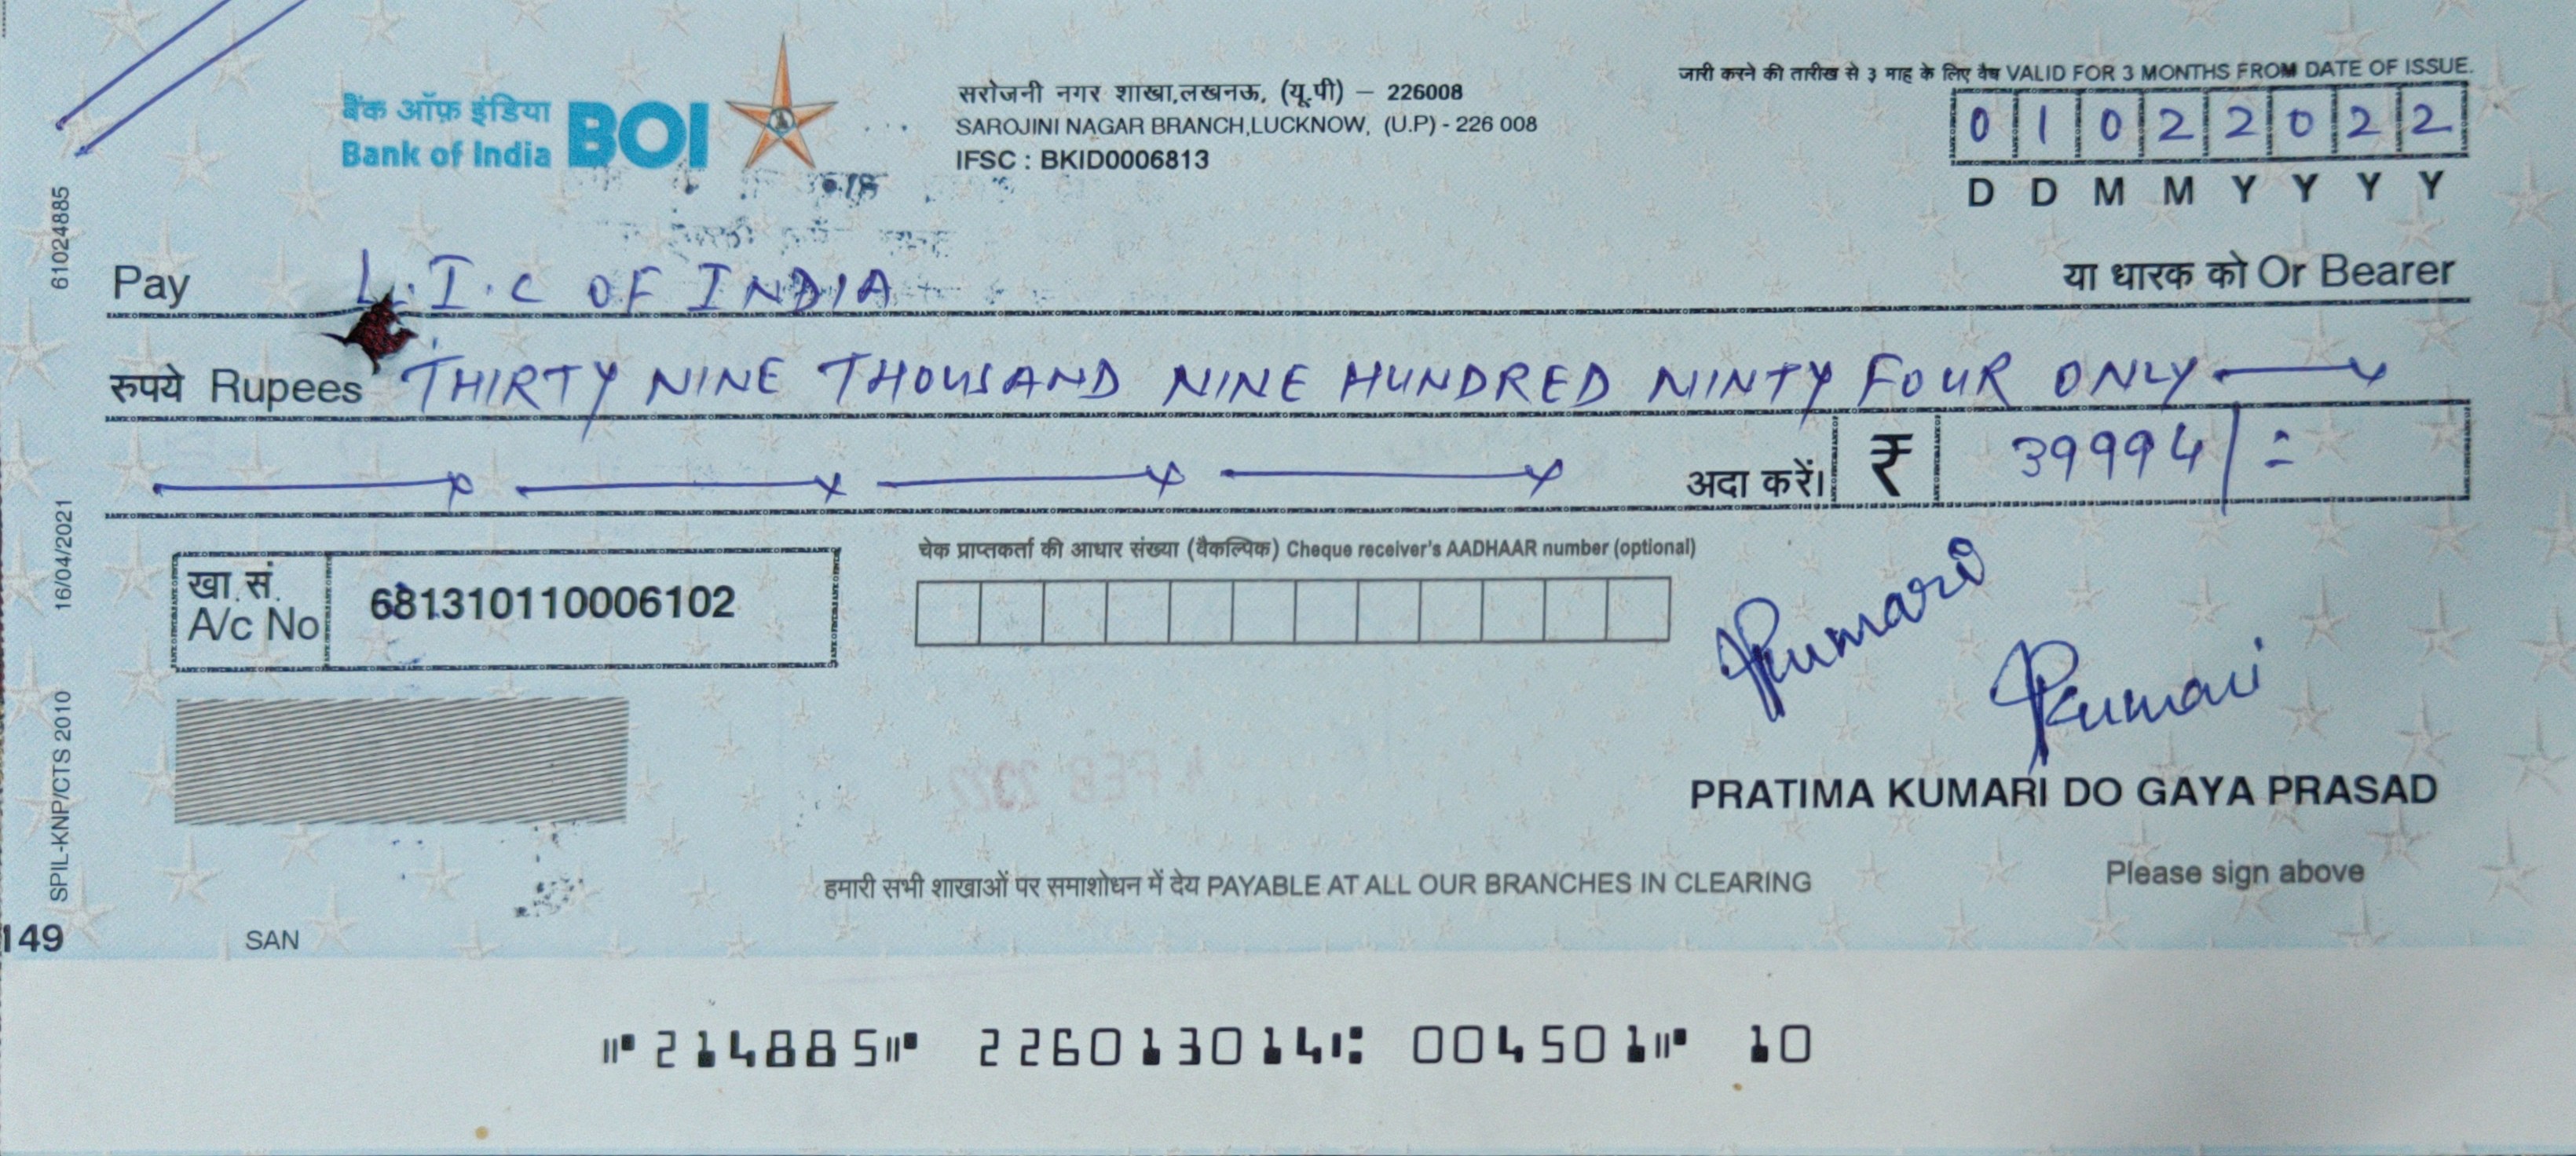 बैंक ऑफ़ इंडिया BOI
Bank of India
सरोजनी नगर शाखा,लखनऊ, (यू.पी) – 226008
SAROJINI NAGAR BRANCH,LUCKNOW, (U.P) - 226 008
IFSC : BKID0006813
जारी करने की तारीख से ३ माह के लिए वैध VALID FOR 3 MONTHS FROM DATE OF ISSUE.
0 1 0 2 2 0 2 2
D D M M Y Y Y Y
610244885
Pay L.I.C OF INDIA या धारक को Or Bearer
रुपये Rupees THIRTY NINE THOUSAND NINE HUNDRED NINTY FOUR ONLY
अदा करें। ₹ 39994/=
16/04/2021
खा.सं. A/c No 681310110006102
चेक प्राप्तकर्ता की आधार संख्या (वैकल्पिक) Cheque receiver's AADHAAR number (optional)
PKumari
PKumari
FEB 2022
PRATIMA KUMARI DO GAYA PRASAD
SPIL-KNP/CTS 2010
हमारी सभी शाखाओं पर समाशोधन में देय PAYABLE AT ALL OUR BRANCHES IN CLEARING
Please sign above
149 SAN
⑈214885⑈ 226013014⑆ 004501⑈ 10